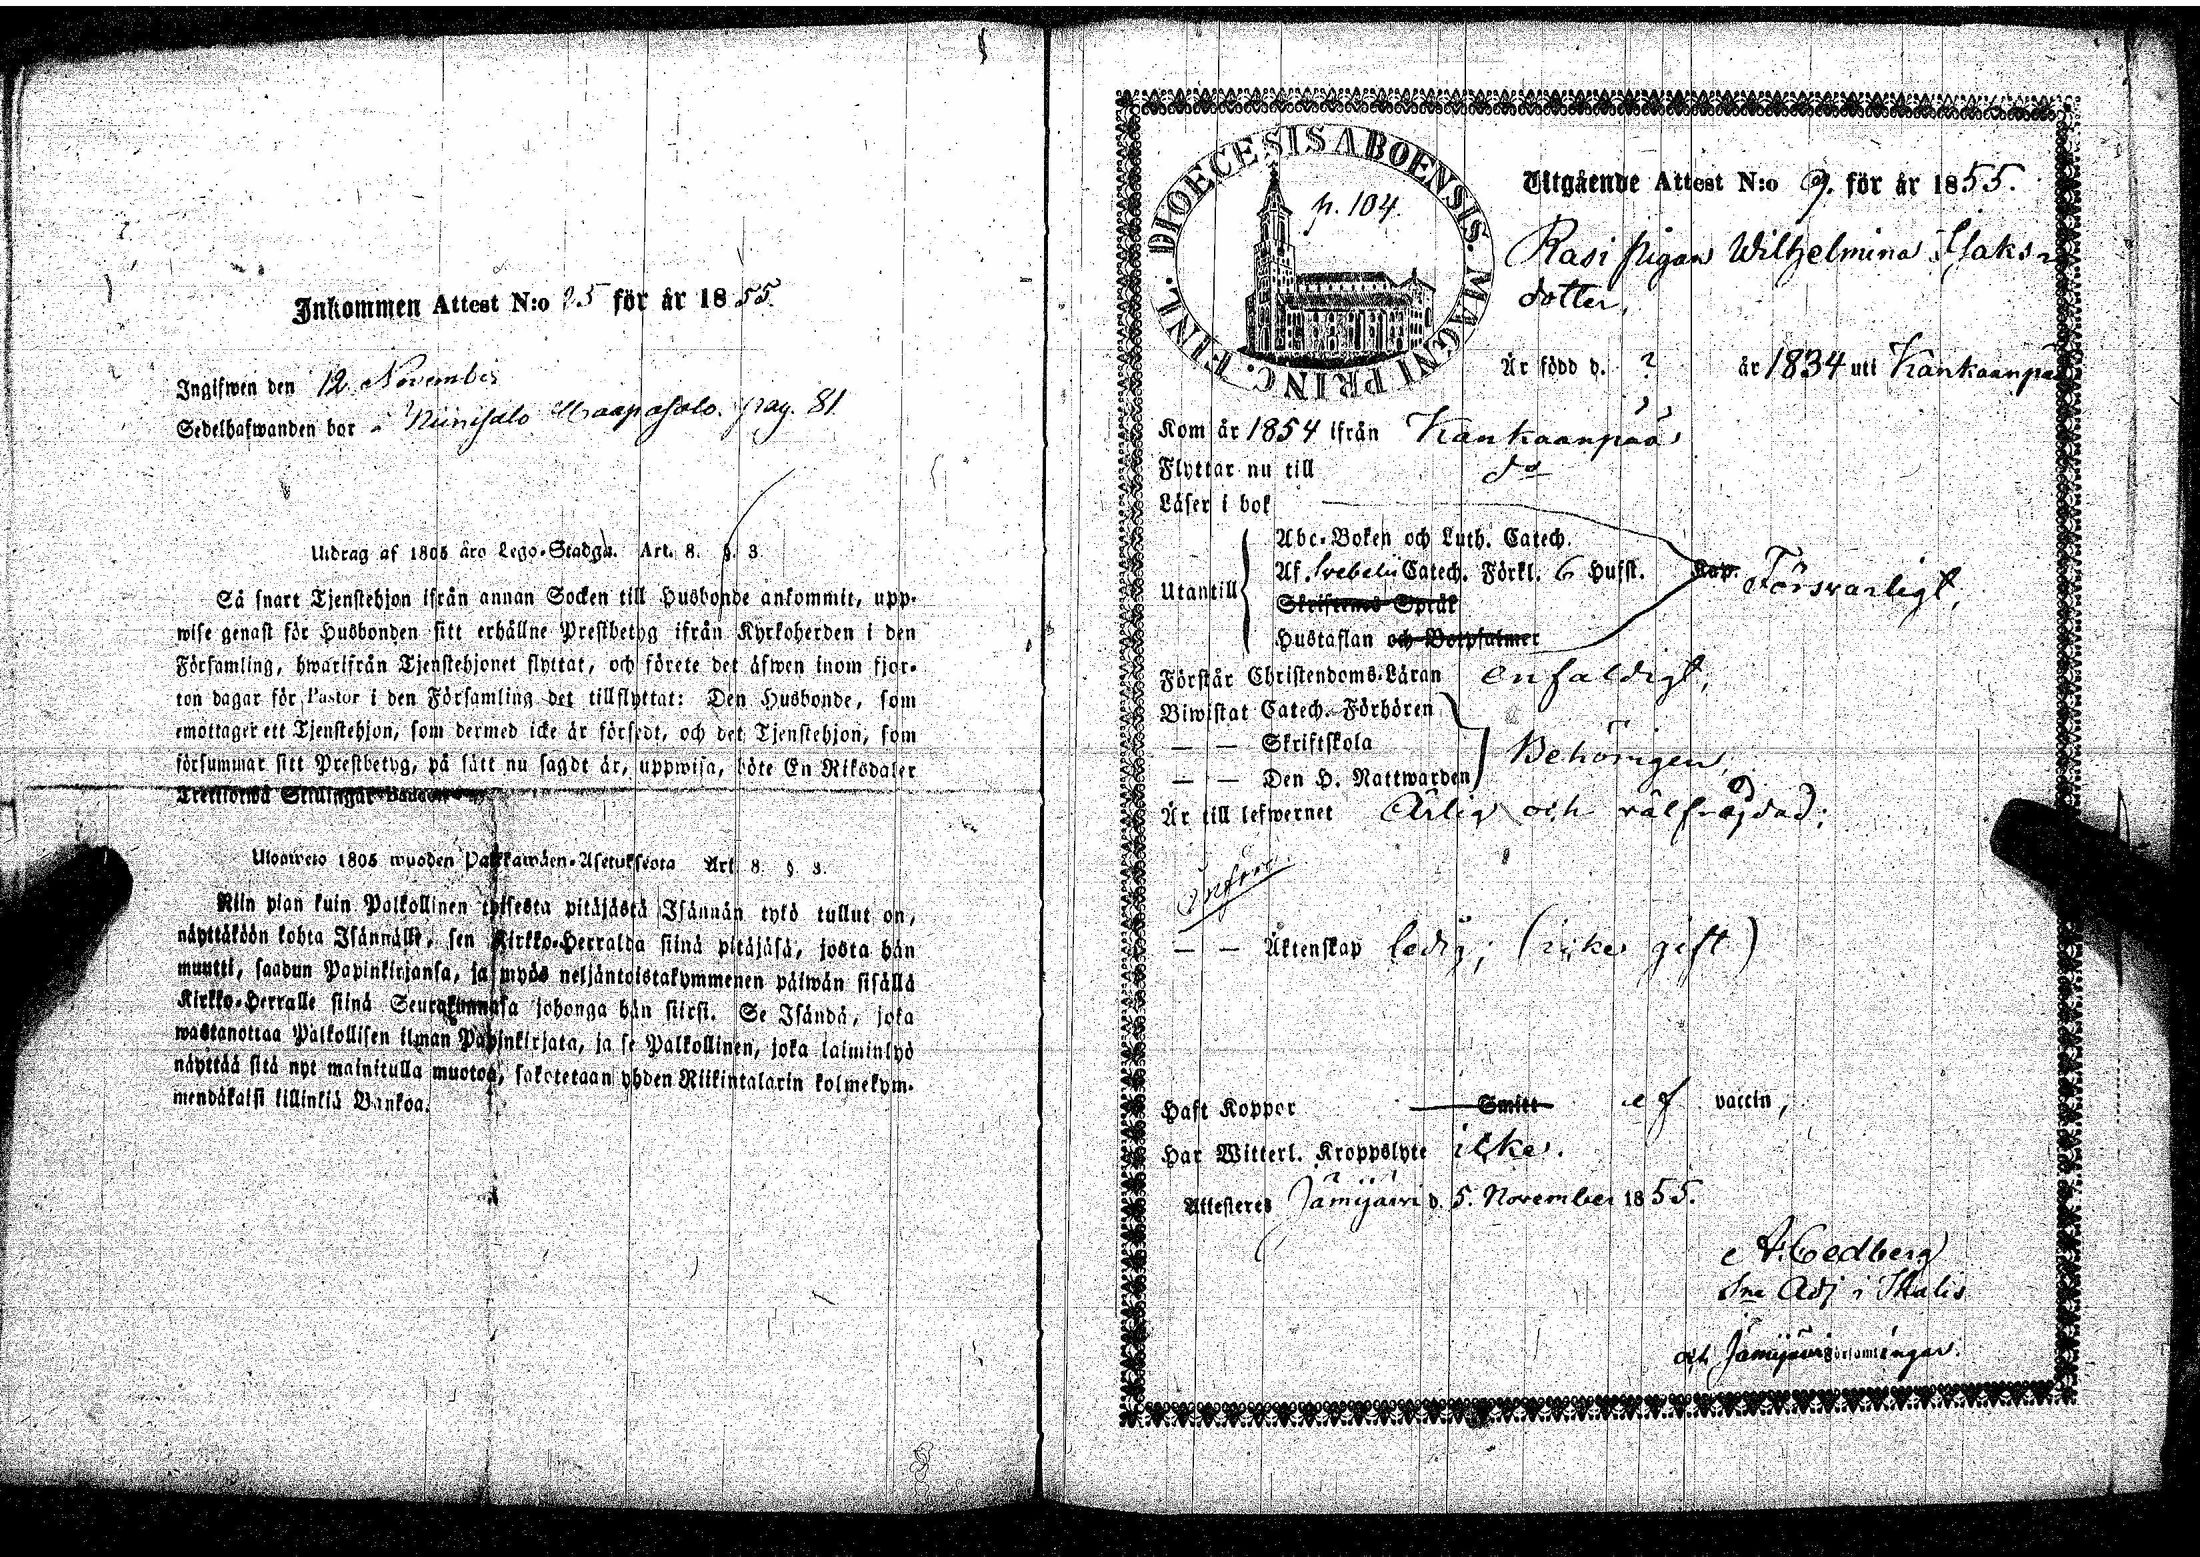 Inkommen Attest N:o 25 för år 1855.
Ingifwen den 12 November
Sedelhafwanden bor Niinisalo pag. 81
Utdrag af 1805 års Lego-Stadga. Art. 8. §. 3
Så snart Tjenstehjon ifrån annan Socken till Husbonde ankommit, upp-
wise genast för Husbonden sitt erhållne Prestbetyg ifrån Kyrkoherden i den
Församling, hwarifrån Tjenstehjonet flyttat, och förete det äfwen inom fjor-
ton dagar för Pastor i den Församling det tillflyttat: Den Husbonde, som
emottager ett Tjenstehjon, som dermed icke är försedt, och det Tjenstehjon, som
försummar sitt Prestbetyg, på sätt nu sagdt är, uppwisa, böte En Riksdaler
Trettiotwå Skillingar Banco
Ulosweto 1805 wuoden Palkkawäen-Asetuksesta Art. 8. §. 3.
Niin pian kuin Palkollinen toisesta pitäjästä Isännän tykö tullut on,
näyttäköön kohta Isännälle, sen Kirkko-Herralda siinä pitäjäsä, josta hän
muutti, saadun Papinkirjansa, ja myös neljäntoistakymmenen päiwän sisällä
Kirkko-Herralle siinä Seurakunnasa johonga hän siirsi. Se Isändä, joka
wastanottaa Palkollisen ilman Papinkirjata, ja se Palkollinen, joka laiminlyö
näyttää sitä nyt mainitulla muotoa, sakotetaan yhden Riikintalarin kolmekym-
mendäkaksi killinkiä Bankoa.
DIOECESIS ABOENSIS. MAGNI PRINC. FINL.
p. 104
Utgående Attest N:o 9. för år 1855.
Rasi pigan Wilhelmina Isaks-
dotter,
Är född d. ? år 1834 uti Kankaanpää
Kom år 1854 ifrån Kankaanpää
Flyttar nu till do
Läser i bok
Abc-Boken och Luth. Catech.
Utantill Af Svebelii Catech. Förkl. 6 Hufst. Cap. Försvarligt,
Skriftenes Språk
Hustaflan och Botpsalmer
Förstår Christendoms-Läran enfaldigt,
Biwistat Catech.-Förhören
— — Skriftskola Behörigen,
— — Den H. Nattwarden
Är till lefwernet Ärlig och välfrägdad;
— — Äktenskap ledig; (icke gift)
Haft Koppor Smitt ef vaccin,
Har Witterl. Kroppslyte icke.
Attesteres Jämijärvi d. 5. November 1855.
A. Cedberg
Adj i Ikalis
och Jämijärvi Församlingar.